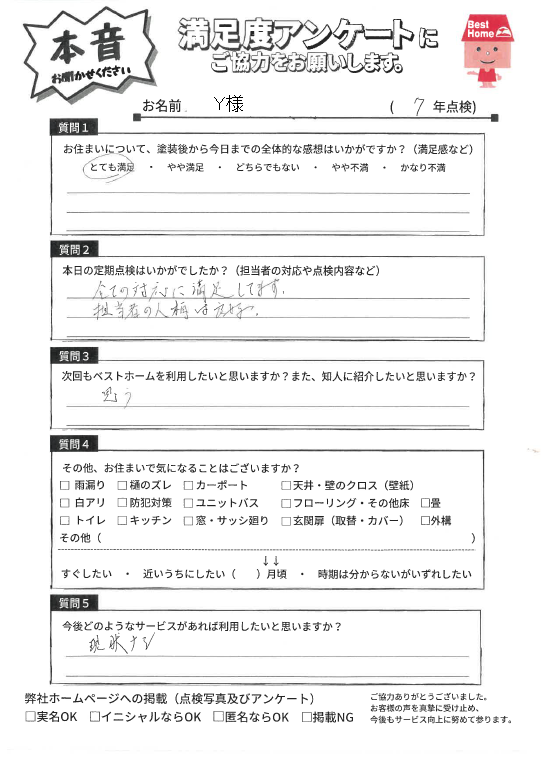 本音
お聞かせください
満足度アンケートに
ご協力をお願いします。
Best
Home
お名前 Y様 ( 7 年点検)
質問1
お住まいについて、塗装後から今日までの全体的な感想はいかがですか？（満足感など）
とても満足 ・ やや満足 ・ どちらでもない ・ やや不満 ・ かなり不満
質問2
本日の定期点検はいかがでしたか？（担当者の対応や点検内容など）
全ての対応に満足してます。
担当者の人柄は良好。
質問3
次回もベストホームを利用したいと思いますか？また、知人に紹介したいと思いますか？
思う
質問4
その他、お住まいで気になることはございますか？
□ 雨漏り □ 樋のズレ □ カーポート □ 天井・壁のクロス（壁紙）
□ 白アリ □ 防犯対策 □ ユニットバス □ フローリング・その他床 □畳
□ トイレ □ キッチン □ 窓・サッシ廻り □ 玄関扉（取替・カバー） □外構
その他（ ）
↓↓
すぐしたい ・ 近いうちにしたい（ ）月頃 ・ 時期は分からないがいずれしたい
質問5
今後どのようなサービスがあれば利用したいと思いますか？
現状ナシ
弊社ホームページへの掲載（点検写真及びアンケート）
□実名OK □イニシャルならOK □匿名ならOK □掲載NG
ご協力ありがとうございました。
お客様の声を真摯に受け止め、
今後もサービス向上に努めて参ります。